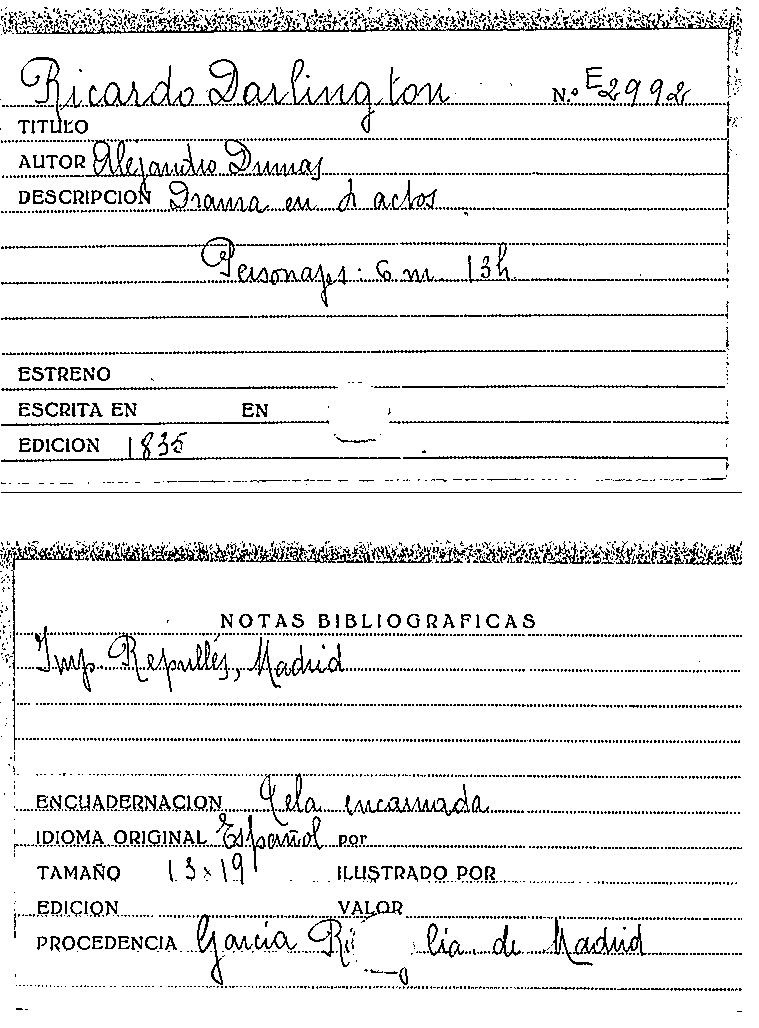 Ricardo Darlington N.º E2992
TITULO
AUTOR Alejandro Dumas
DESCRIPCION Drama en actos
Personajes: 6 m 13h
ESTRENO
ESCRITA EN EN
EDICION 1835
NOTAS BIBLIOGRAFICAS
Imp. Repullés, Madrid
ENCUADERNACION Tela encarnada
IDIOMA ORIGINAL Español por
TAMAÑO 13x19 ILUSTRADO POR
EDICION VALOR
PROCEDENCIA García de Madrid